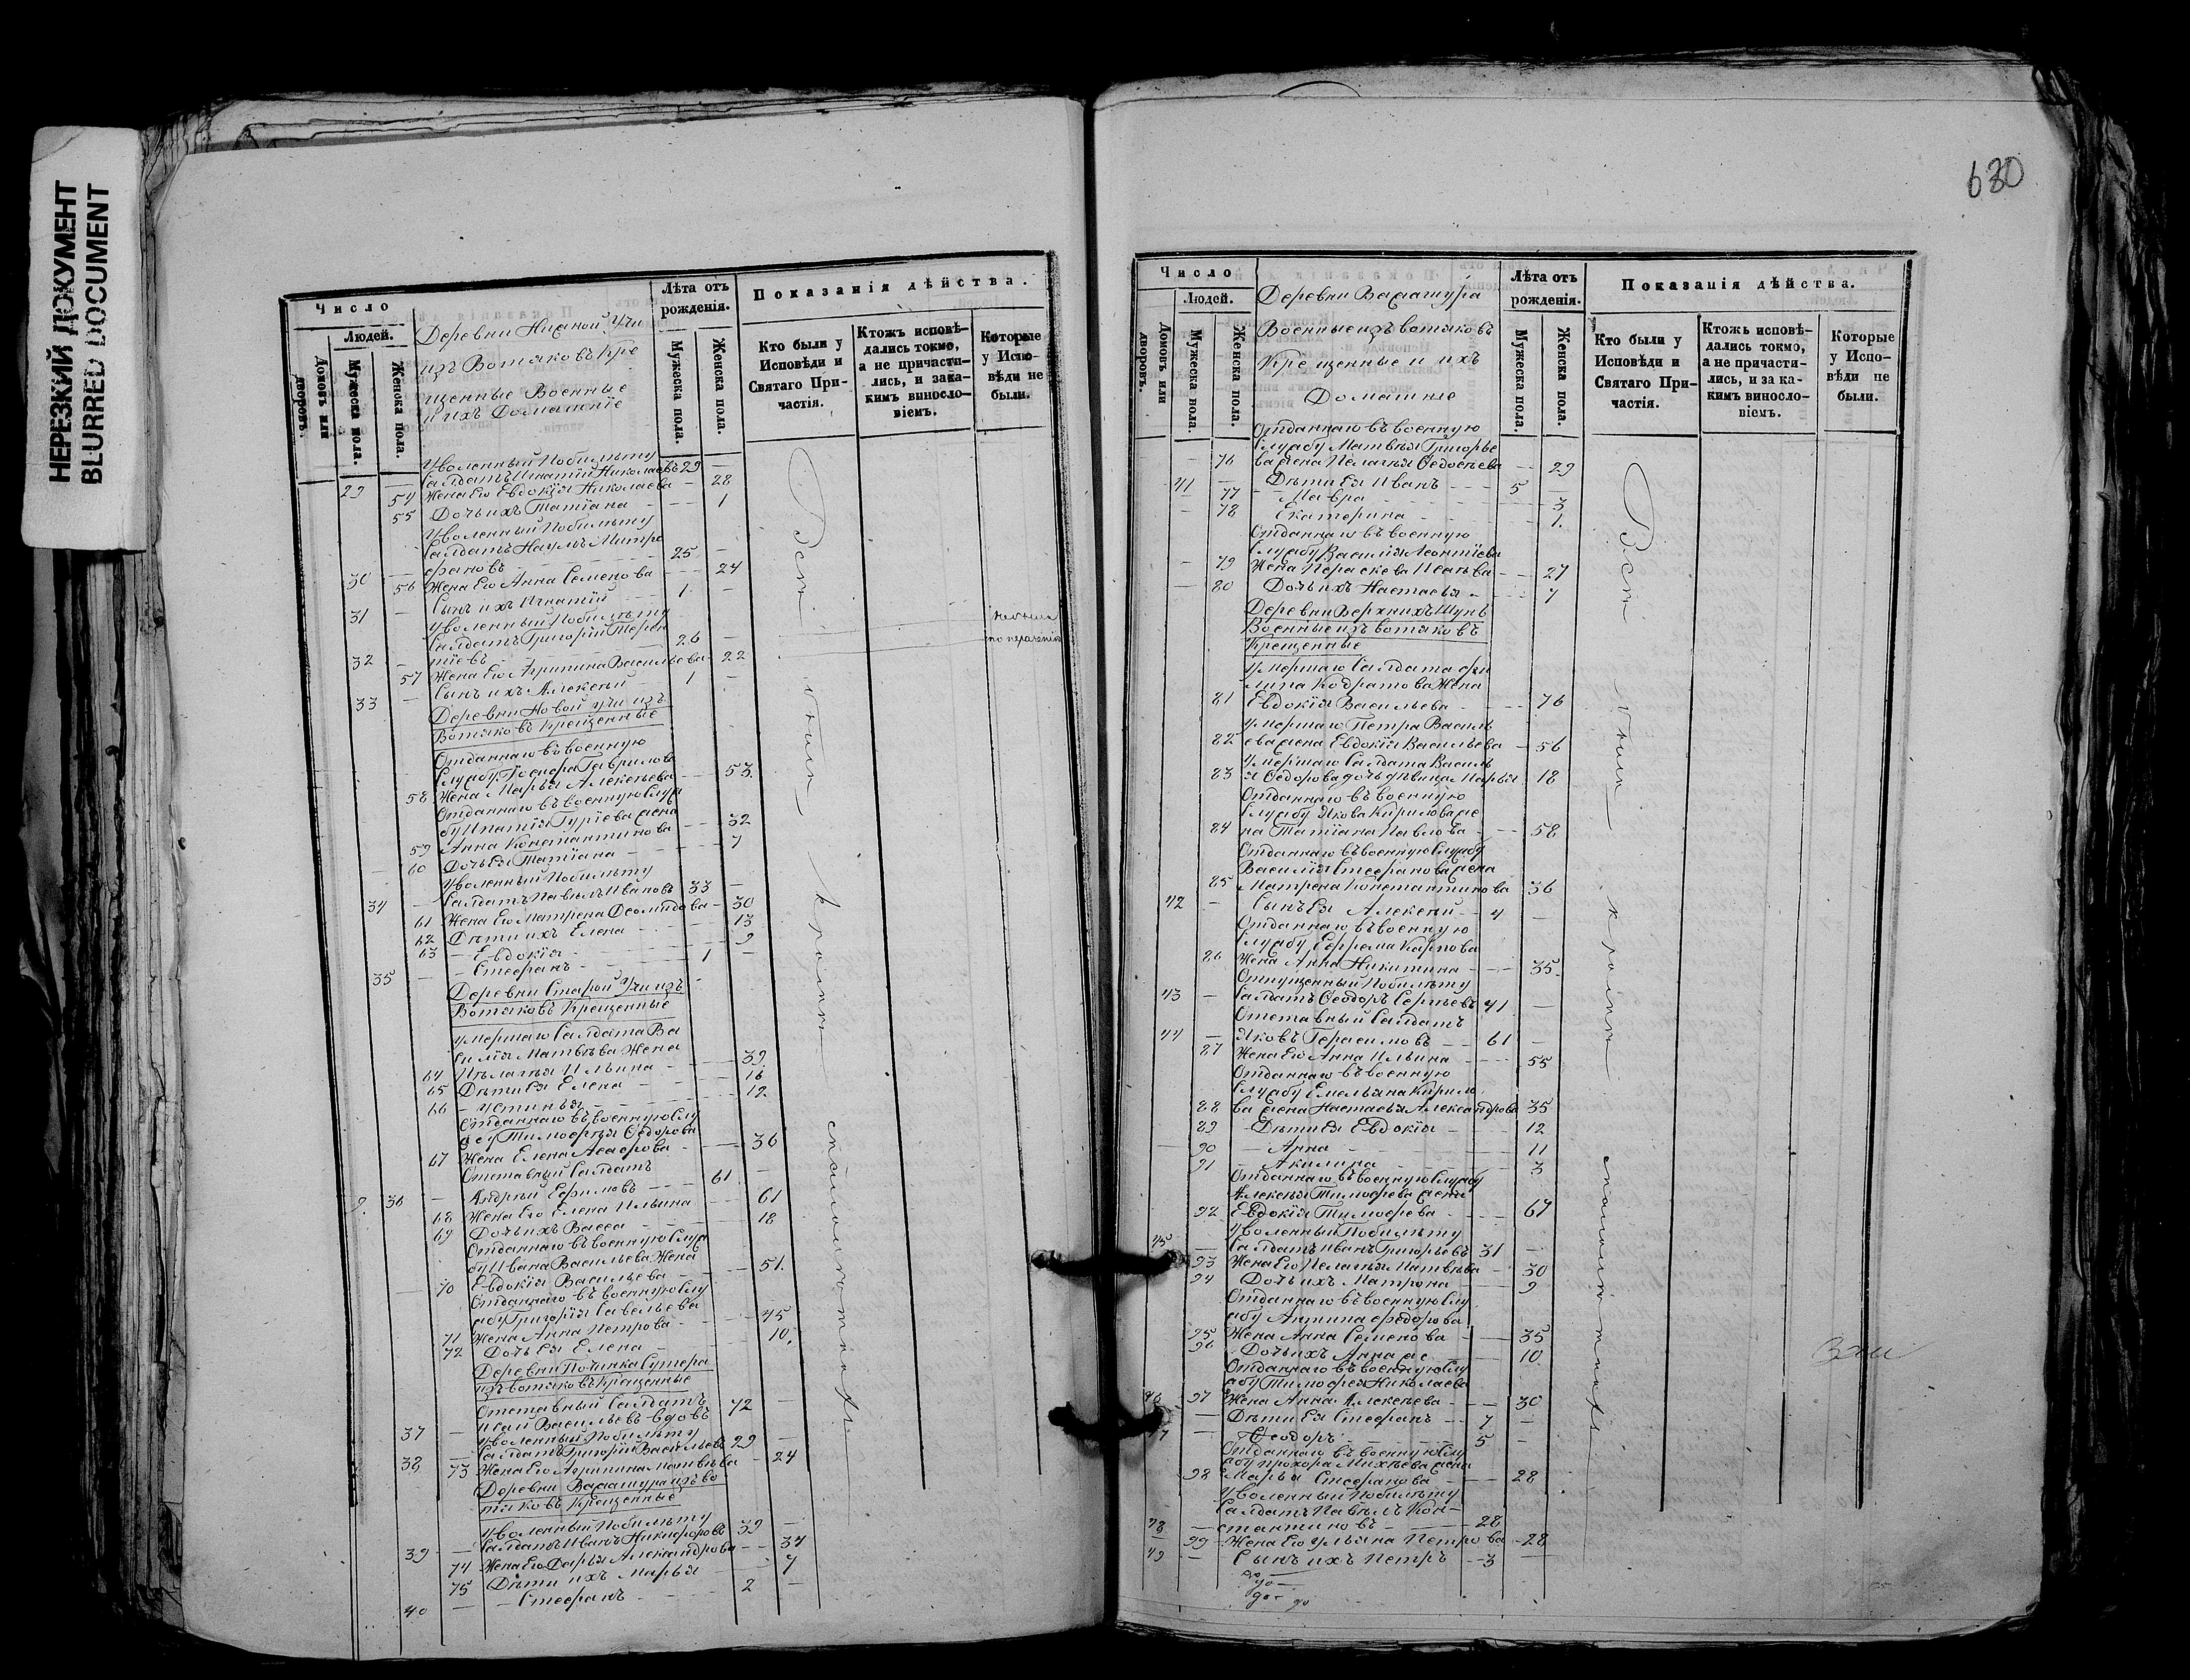 НЕРЕЗКИЙ ДОКУМЕНТ
BLURRED DOCUMENT
Число
Людей.
Домовъ или дворовъ.
Мужеска пола.
Женска пола.
Деревни Нижной Учи
изъ Вотяковъ Кре
щенные Военные
и ихъ Домашніе
Лѣта отъ рожденія.
Мужеска пола.
Женска пола.
Показанія дѣйства.
Кто были у Исповѣди и Святаго Причастія.
Ктожъ исповѣдались токмо, а не причастились, и за какимъ винословіемъ.
Которые у Исповѣди не были.
Уволенный побилѣту
29 — Салдатъ Игнатій Николаевъ 29 —
54 Жена Его Евдокія Николаева — 28
55 Дочь ихъ Татіана — 1
Уволенный Побилѣту
Салдатъ Наумъ Митро
30 — фановъ 25 —
56 Жена Его Анна Семенова — 24
31 — Сынъ ихъ Игнатій 1 —
Уволенный Побилѣту
Салдатъ Григорій Терен
32 — тіевъ 26 —
57 Жена Его Агрипина Васильева 22
33 — Сынъ ихъ Алексѣй 1 —
Деревни Новой Учи изъ
Вотяковъ Крещенные
Отданнаго въ военную
Службу Іосифа Гаврилова
58 Жена Марья Алексѣева — 53
Отданнаго въ военную Служ
бу Игнатія Гуріева жена
59 Анна Константинова — 32
60 Дочь Ея Татіана — 7
Уволенный Побилѣту
34 — Салдатъ Павелъ Ивановъ 33 —
61 Жена Его Матрена Деомидова — 30
62 Дѣти ихъ Елена — 13
63 — Евдокія — 9
35 — — Стефанъ 1 —
Деревни Старой Учи изъ
Вотяковъ Крещенные
умершаго Салдата Ва
силія Матвѣева Жена
64 Пѣлагѣя Ильина — 39
65 Дѣти Ея Елена — 16
66 — Устинья — 12
Отданнаго въ военную Слу
жбу Тимофѣя Ѳедорова
67 Жена Елена Асафова — 36
Отставный Салдатъ
36 — Андрѣй Ефимовъ 61 —
68 Жена Его Елена Ильина — 61
69 Дочь ихъ Васса — 18
Отданнаго въ военную Служ
бу Ивана Васильева Жена
70 Евдокія Васильева — 51
Отданнаго въ военную Слу
жбу Григорія Савельева
71 Жена Анна Петрова — 45
72 Дочь Ея Елена — 10
Деревни Починка Сутера
изъ вотяковъ Крещенные
Отставный Салдатъ
37 — Исаи Васильевъ вдовъ 72 —
Уволенный Побилѣту
38 — Салдатъ Григорій Васильевъ 29 —
73 Жена Его Агрипина Матвѣева — 24
Деревни Важашура изъ во
тяковъ Крещенные
Уволенный Побилѣту
39 — Салдатъ Иванъ Никифоровъ 39 —
74 Жена Его Дарья Александрова — 34
75 Дѣти ихъ Марья 7
40 — — Стефанъ 2 —
Всѣ были
630
Число
Людей.
Домовъ или дворовъ.
Мужеска пола.
Женска пола.
Деревни Важашура
Военные изъ вотяковъ
Крещенные и ихъ
Домашніе
Лѣта отъ рожденія.
Мужеска пола.
Женска пола.
Показанія дѣйства.
Кто были у Исповѣди и Святаго Причастія.
Ктожъ исповѣдались токмо, а не причастились, и за какимъ винословіемъ.
Которые у Исповѣди не были.
Отданнаго въ военную
Службу Матвѣя Григорье
76 ва жена Пелагѣя Ѳедосѣева — 29
41 — Дѣти Ея Иванъ 5 —
77 — Мавра — 3
78 Екатерина — 1
Отданнаго въ военную
Службу Василія Леонтіева
79 Жена Параскева Исаѣва — 27
80 Дочь ихъ Настасья — 7
Деревни Верхнихъ Шунь
Военные изъ вотяковъ
Крещенные
умершаго Салдата Фи
липа Кодратова Жена
81 Евдокія Васильева — 76
умершаго Петра Василь
82 ева жена Евдокія Васильева — 56
умершаго Салдата Василь
83 я Ѳедорова дочь дѣвица Марья 18
Отданнаго въ военную
Службу Якова Кирилова же
84 на Татіана Павлова — 58
Отданнаго въ военную Службу
Василія Стефанова жена
85 Матрена Константинова 36
42 — Сынъ Ея Алексѣй 4 —
Отданнаго въ военную
Службу Ефрема Карпова
86 Жена Анна Никитина — 35
Отпущенный Побилѣту
43 — Салдатъ Ѳеодоръ Сергѣевъ 41 —
Отставный Салдатъ
44 — Яковъ Герасимовъ 61 —
87 Жена Его Анна Ильина — 55
Отданнаго въ военную
Службу Емельяна Кирило
88 ва жена Настасья Александрова 35
89 — Дѣти Ея Евдокія — 12
90 — Анна — 11
91 — Акилина — 3
Отданнаго въ военную Службу
Алексѣя Тимофѣева жена
92 Евдокія Тимофеева — 67
Уволенный Побилѣту
45 — Салдатъ Иванъ Григорьевъ 31 —
93 Жена Его Пелагѣя Матвѣева — 30
94 Дочь ихъ Матрона — 9
Отданнаго въ военную Слу
жбу Антипа Федорова
95 Жена Анна Семенова — 35
96 Дочь ихъ Анна же — 10
Отданнаго въ военную Слу
жбу Тимофея Николаева
97 Жена Анна Алексѣева — 30
46 — Дѣти Ея Стефанъ 7 —
47 — Ѳеодоръ 5 —
Отданнаго въ военную Слу
жбу Прохора Михѣева жена
98 Марья Стефанова — 28
Уволенный Побилѣту
Салдатъ Павелъ Кон-
48 — стантиновъ 28
99 Жена Его Ульяна Петрова — 28
49 — Сынъ ихъ Петръ 3 —
Всѣ были